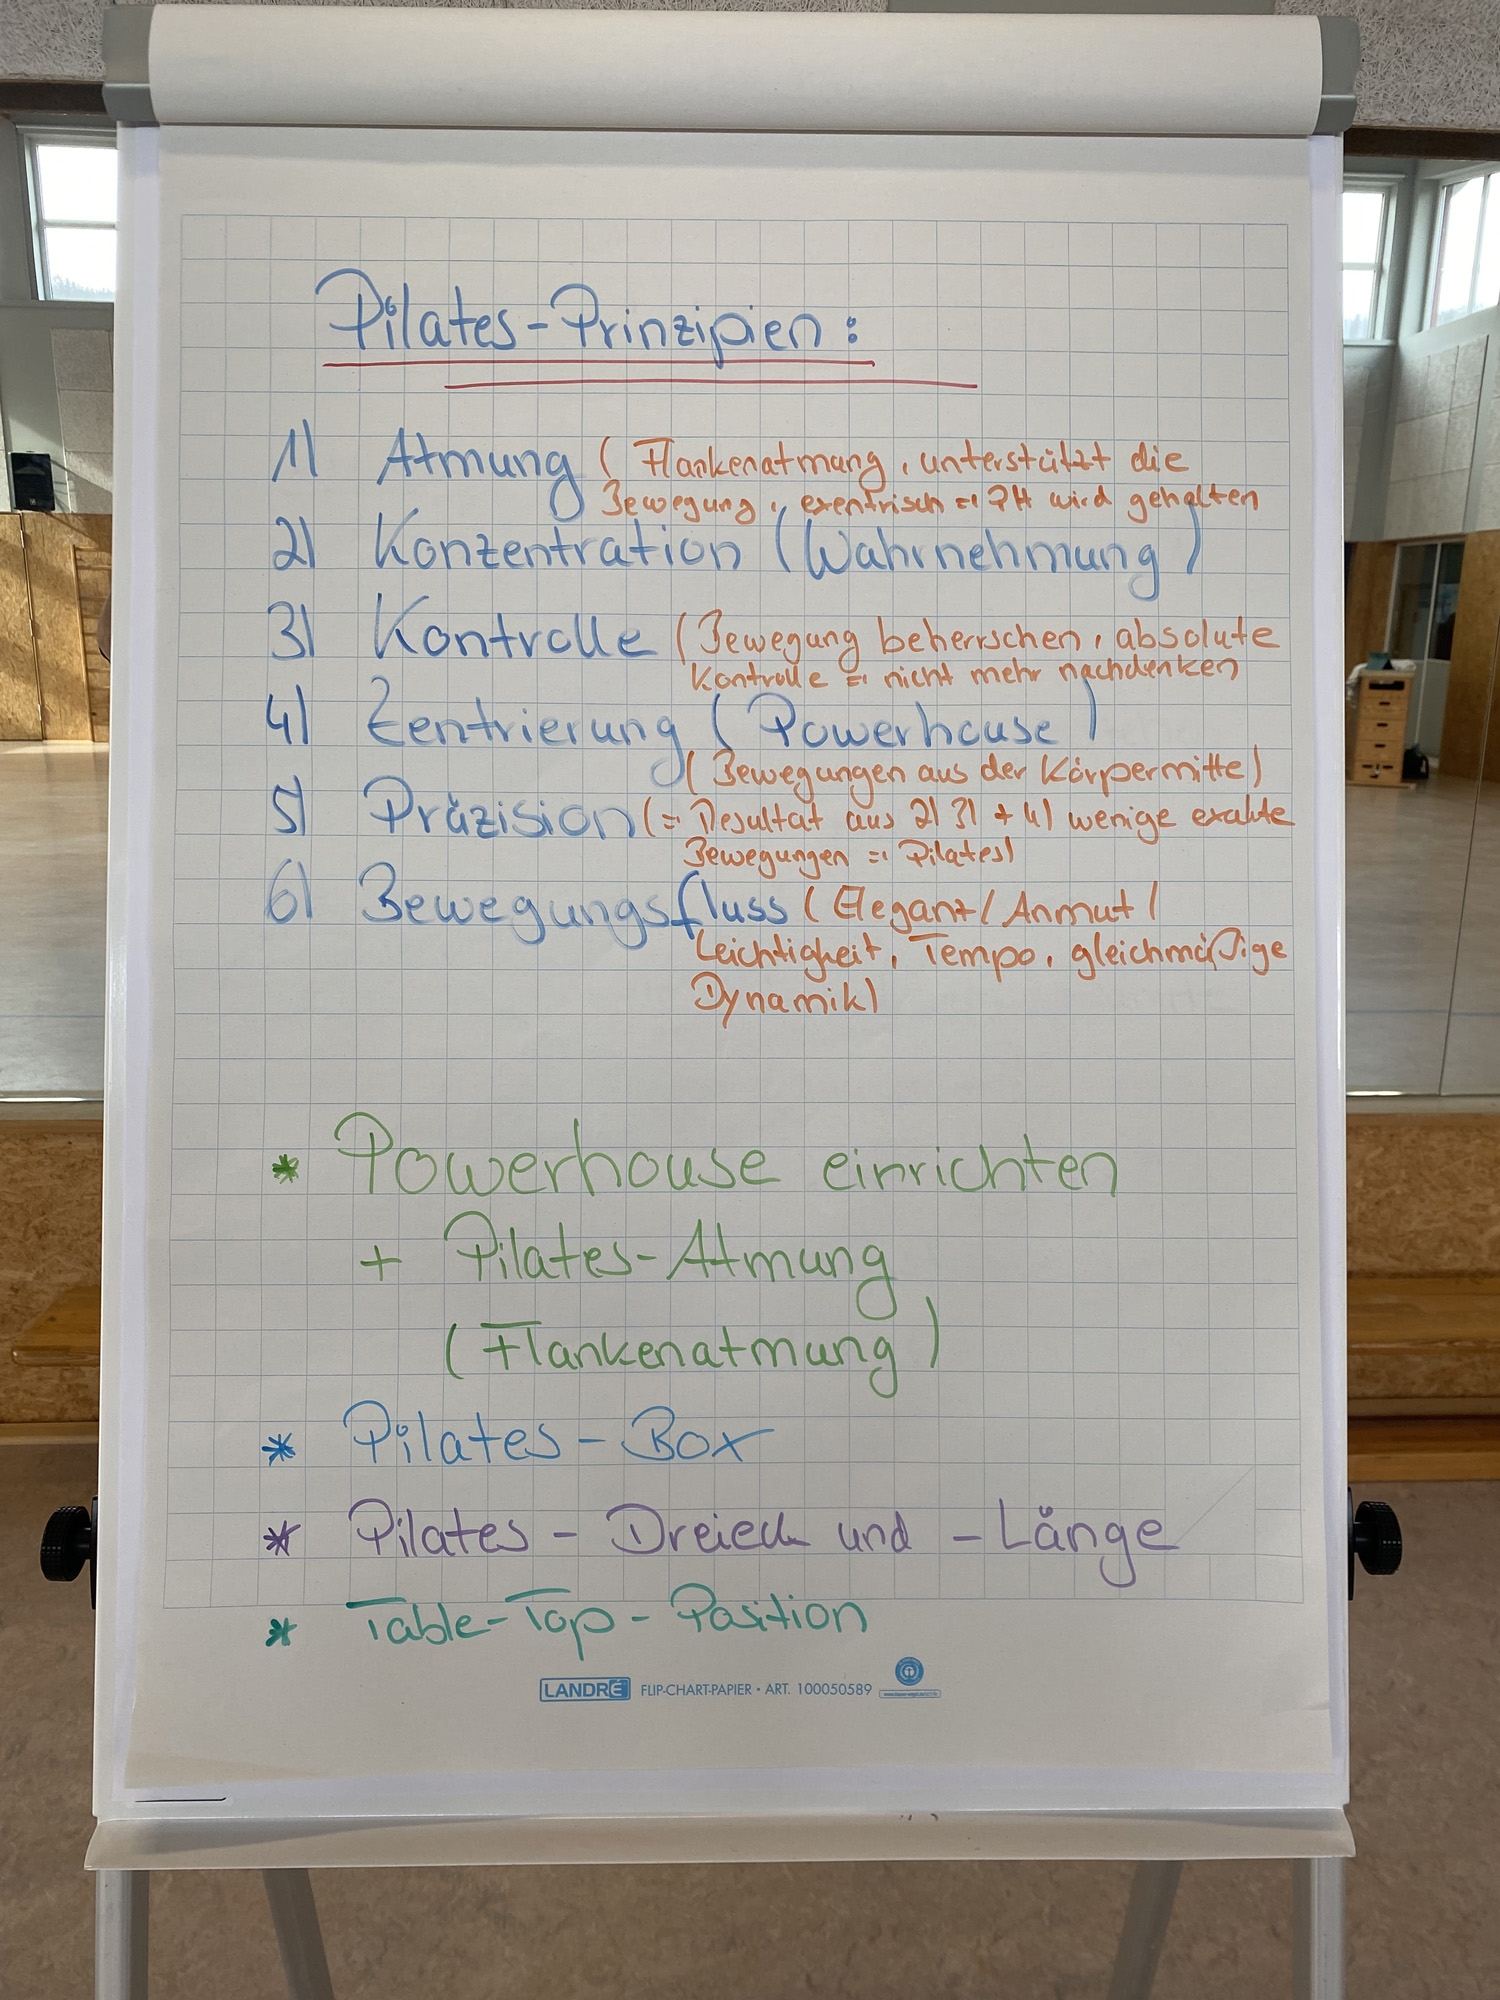 Pilates-Prinzipien:
1) Atmung (Flankenatmung, unterstützt die
Bewegung, exentrisch => PH wird gehalten
2) Konzentration (Wahrnehmung)
3) Kontrolle (Bewegung beherrschen, absolute
Kontrolle => nicht mehr nachdenken
4) Zentrierung (Powerhouse)
(Bewegungen aus der Körpermitte)
5) Präzision (= Resultat aus 2) 3) + 4) wenige exakte
Bewegungen => Pilates)
6) Bewegungsfluss (Eleganz/Anmut/
Leichtigkeit, Tempo, gleichmäßige
Dynamik)
* Powerhouse einrichten
+ Pilates-Atmung
(Flankenatmung)
* Pilates-Box
* Pilates-Dreieck und -Länge
* Table-Top-Position
LANDRÉ FLIP-CHART-PAPIER • ART. 100050589